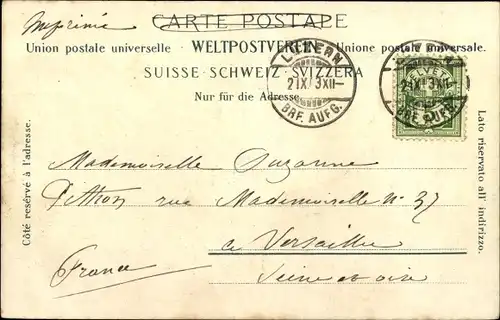 Imprimé
CARTE POSTALE
Union postale universelle · WELTPOSTVEREIN · Unione postale universale.
SUISSE · SCHWEIZ · SVIZZERA
Nur für die Adresse.
LUZERN
21 IX 3 XII-
BRF. AUFG.
LUZERN
21 IX 3 XII-
BRF. AUFG.
HELVETIA
Côté reservé à l'adresse.
Lato riservato all' indirizzo.
Mademoiselle Suzanne
Pithon rue Mademoiselle No 37
a Versailles
France
Seine et oise